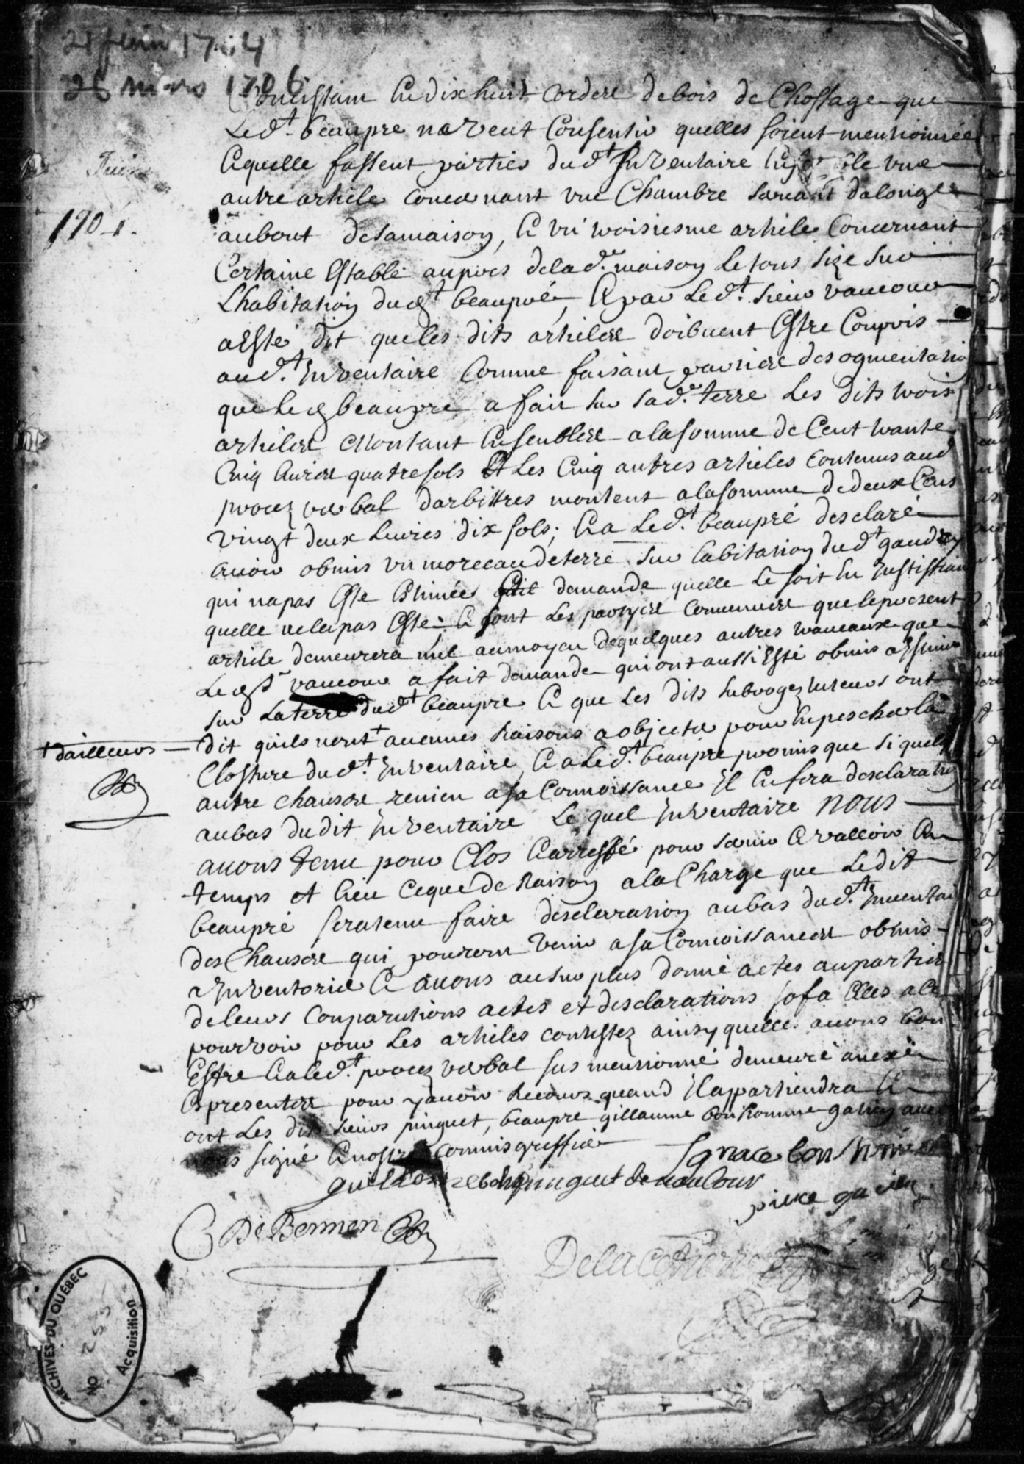 21 fevrier 17
26 mars 1706
Juin
1701.
Concistant En dix huit cordere de bois de Choffage que
Led.t beaupre ne veut Consentir quelles soient mentionnée
Equelle fassent parties dud.t Inventaire vne
autre article concernant vne Chambre servant dalonge
aubout desamaison, E vn troisiesme article Concernant
Certaine Estable aupres delad.e maison le tous size sur
Lhabitation dud.t beaupré, E par Led.t sieur vaucour
aEsté dit queles dits articlere doibuent Estre Compris
aud.t Inventaire comme faisant partiere des ogmentation
que led beaupre a fait sur lad.e terre Les dits trois
articlere Montant Ensemblere alasomme de Cent trante
Cinq livres quatre sols Et Les Cinq autres articles contenus aud
procez verbal darbittres montent alasomme de deux Cens
vingt deux livres dix sols; Ea Led.t beaupré desclaré
avoir obmis vn morceau deterre sur labitation dud.t gaudry
qui napas Esté Estimée quil demande quelle le soit En
quelle nelepas Esté. E sont Les partyere Convenuere que lepresent
article demeurera nul aumoyen dequelques autres travaux que
Led.t vaucour a fait demande qui ont aussi Esté obmis aEstimer
sur La terre dud.t beaupre E que Les dits subrogez tuteurs ont
dit quils nont + aucunes Raisons a objecter pour Enpescher la
+ dailleurs
Closture dud.t Inventaire, E a Led.t beaupre promis que si quelq
autre chausere revien asa Connoissance Il En fera desclaration
aubas dudit Inventaire Le quel Inventaire Nous
auons tenu pour Clos E arresté pour servir E valloir En
temps et lieu Ceque de Raison ala Charge que Ledit
beaupré seratenu faire desclaration aubas dud.t Inventai
des Chausere qui pouront venir asa Connoissancere obmis
aInventorié E auons ausurplus donné actes auparties
deleurs Comparutions actes et desclarations sofa Elles ase
pourvoir pour Les articles contestez ainsy quelle auons bon
Estre E a led.t procez verbal sus mentionné demeuré anexé
Espresentere pour y auoir Recours quand Il appartiendra E
ont Les dits sieurs pinguet, beaupre guillaume bonhomme avec
nous signé E nostre Commis greffier
Ignace bonhomme
pinguet de vaucour
pierre
C De Bermen
Dela
ARCHIVES DU QUÉBEC
No
Acquisition